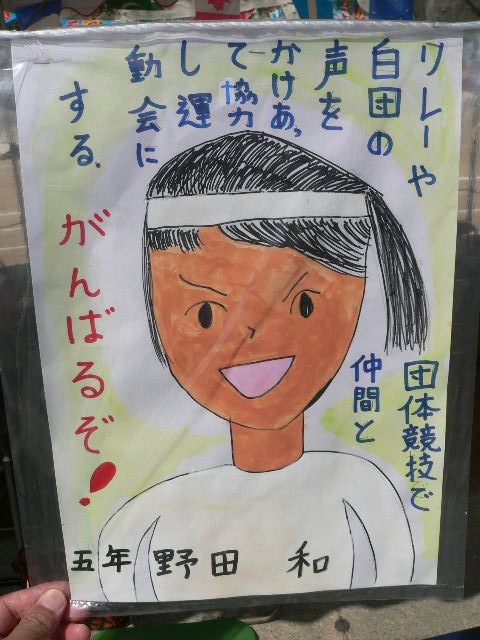 リレーや団体競技で
自団の仲間と
声を
かけあっ
て協力
し運
動会に
する、
がんばるぞ!
五年 野田 和